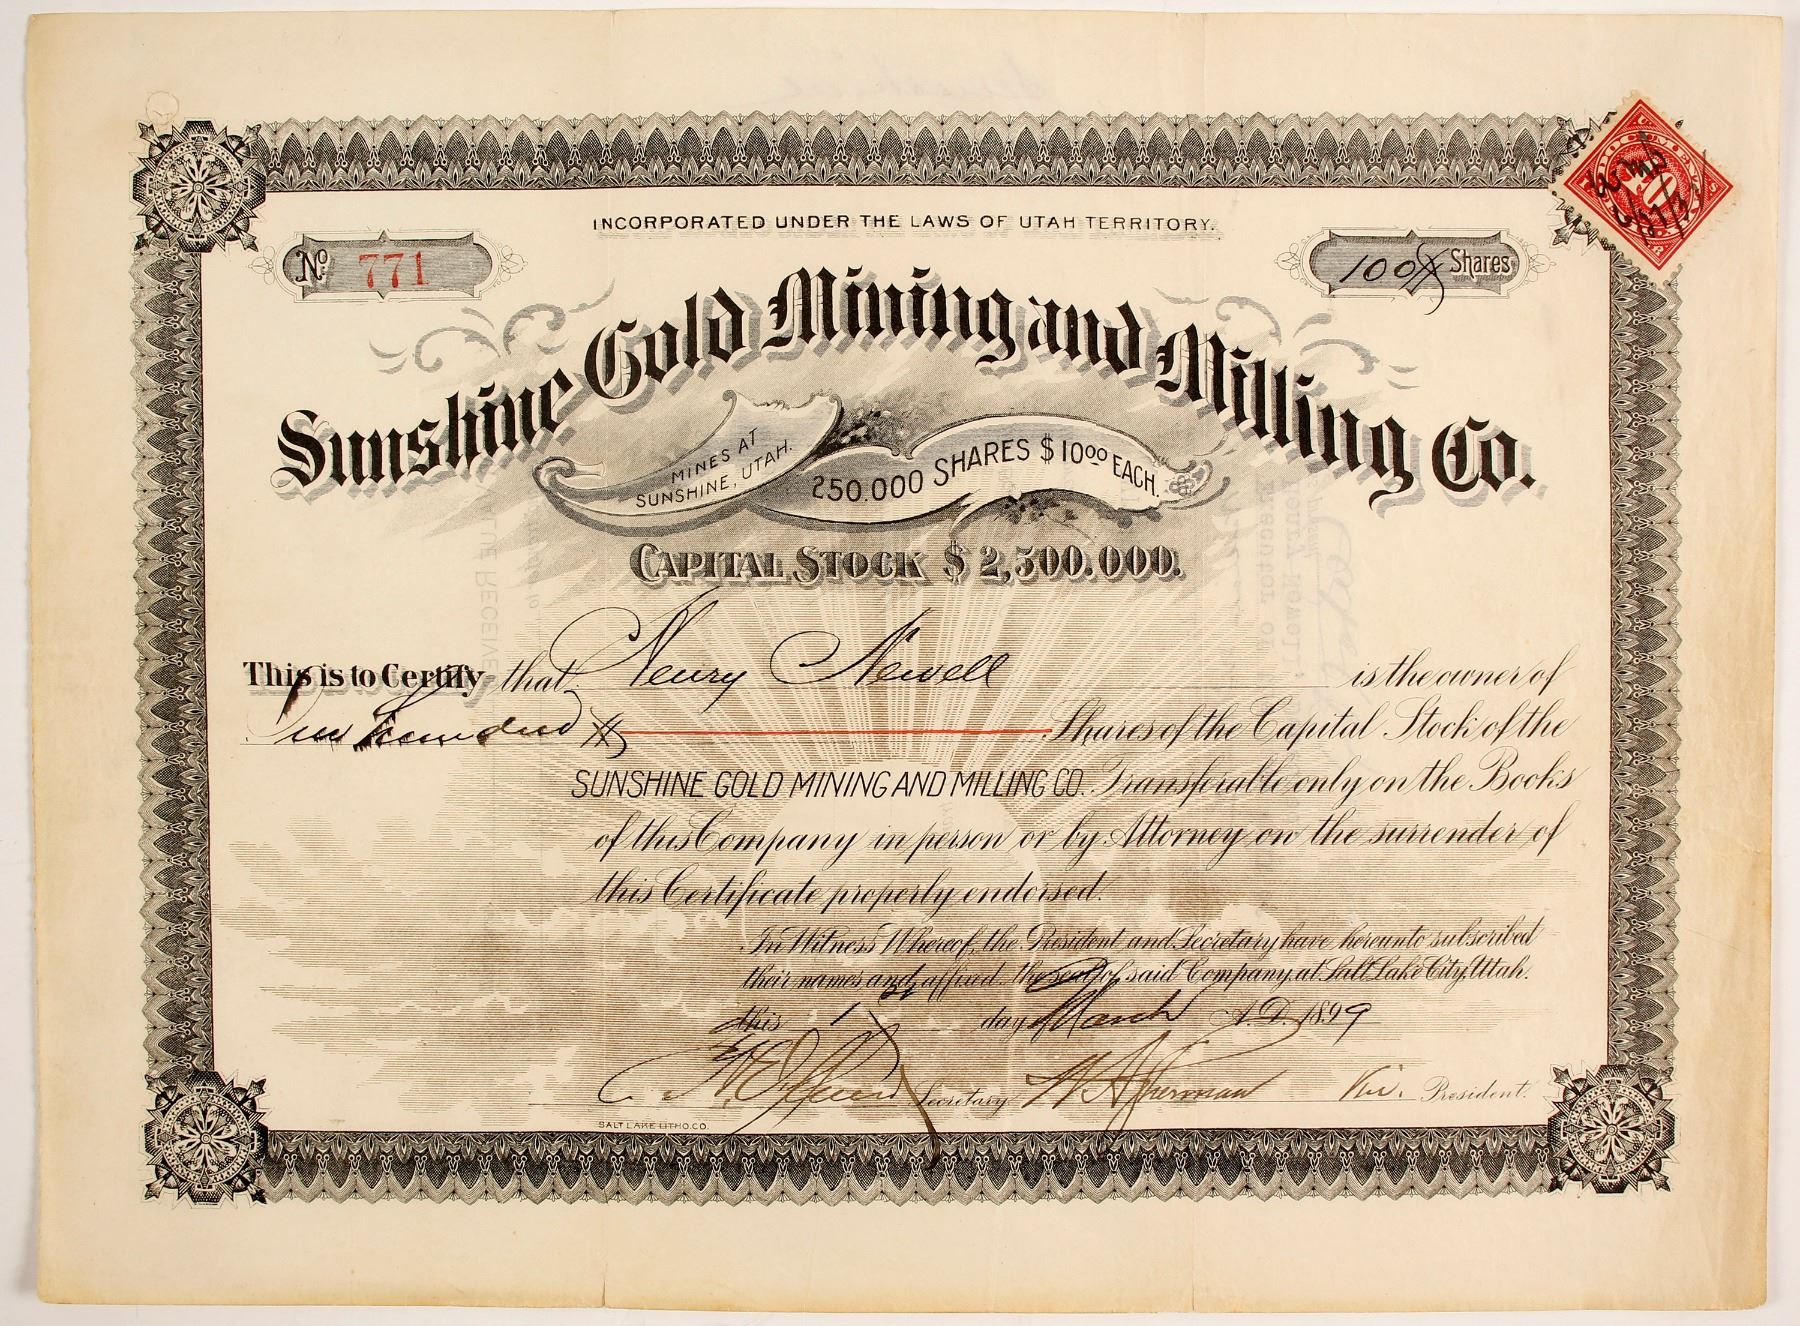 INCORPORATED UNDER THE LAWS OF UTAH TERRITORY.
No. 771
100 Shares
Sunshine Gold Mining and Milling Co.
MINES AT
SUNSHINE, UTAH.
250.000 SHARES $10.00 EACH.
CAPITAL STOCK $2,500.000.
This is to Certify that Henry Newell is the owner of
One Hundred Shares of the Capital Stock of the
SUNSHINE GOLD MINING AND MILLING CO. Transferable only on the Books
of this Company in person or by Attorney on the surrender of
this Certificate properly endorsed.
In Witness Whereof, the President and Secretary have hereunto subscribed
their names and affixed the seal of said Company, at Salt Lake City, Utah.
this 1 day of March A.D. 1899
Secretary
President.
SALT LAKE LITHO. CO.